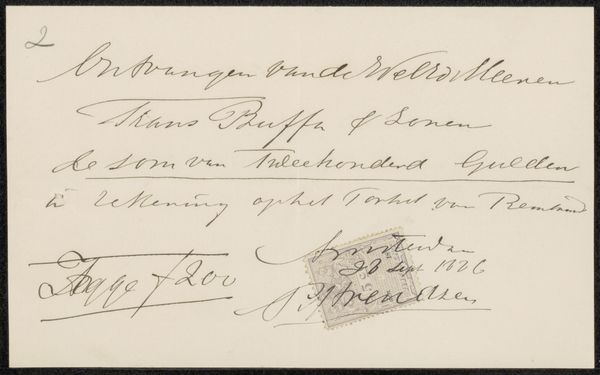 2
Ontvangen van de WelEd Heeren
Frans Buffa & Zonen
de som van Tweehonderd Gulden
in rekening op het Portret van Rembrand
Amsterdam
Zegge f 200
28 Sept